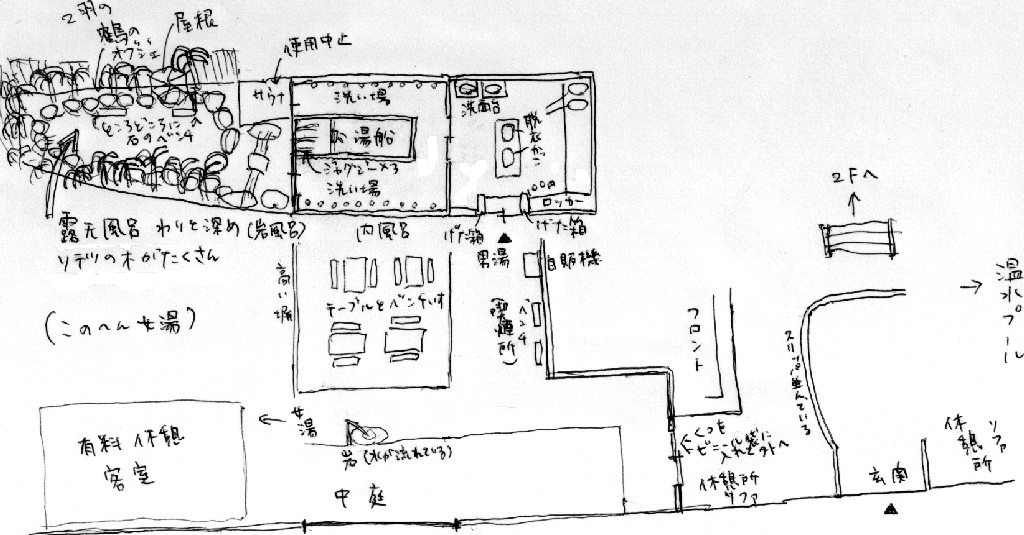 2羽の
鶴の
オブジェ
屋根
使用中止
サウナ
洗い場
湯船
ジャグジー×3
洗い場
洗面台
脱衣かご
ロッカー
ところどころに
石のベンチ
露天風呂 わりと深め(岩風呂)
ソテツの木がたくさん
内風呂
げた箱
げた箱
男湯
自販機
2Fへ
高い塀
テーブルとベンチ
ベンチ
(喫煙所)
フロント
スリッパ並んでいる
温水プール
(このへん女湯)
女湯
有料休憩
客室
岩(水が流れている)
中庭
くつを
ビニール袋に
入れて外へ
休憩所
ソファ
玄関
休憩所
ソファ